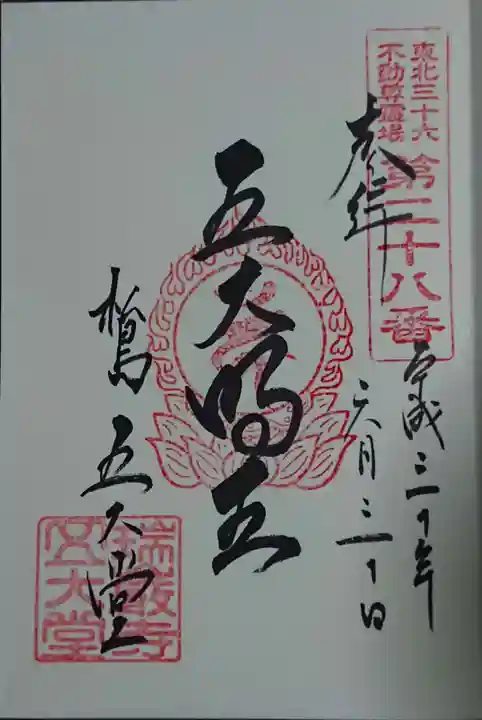 東北三十六
不動尊霊場
第二十八番
奉拝
平成三十年
六月三十日
五大明王
松島 五大堂
瑞巌寺
五大堂